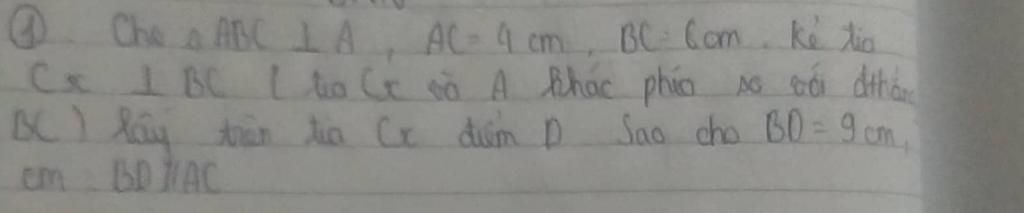 ① Cho △ ABC ⊥ A, AC = 4 cm, BC = 6 cm. Kẻ tia
Cx ⊥ BC ( tia Cx và A khác phía so với đthẳng
BC) lấy trên tia Cx điểm D sao cho BD = 9 cm,
cm BD // AC